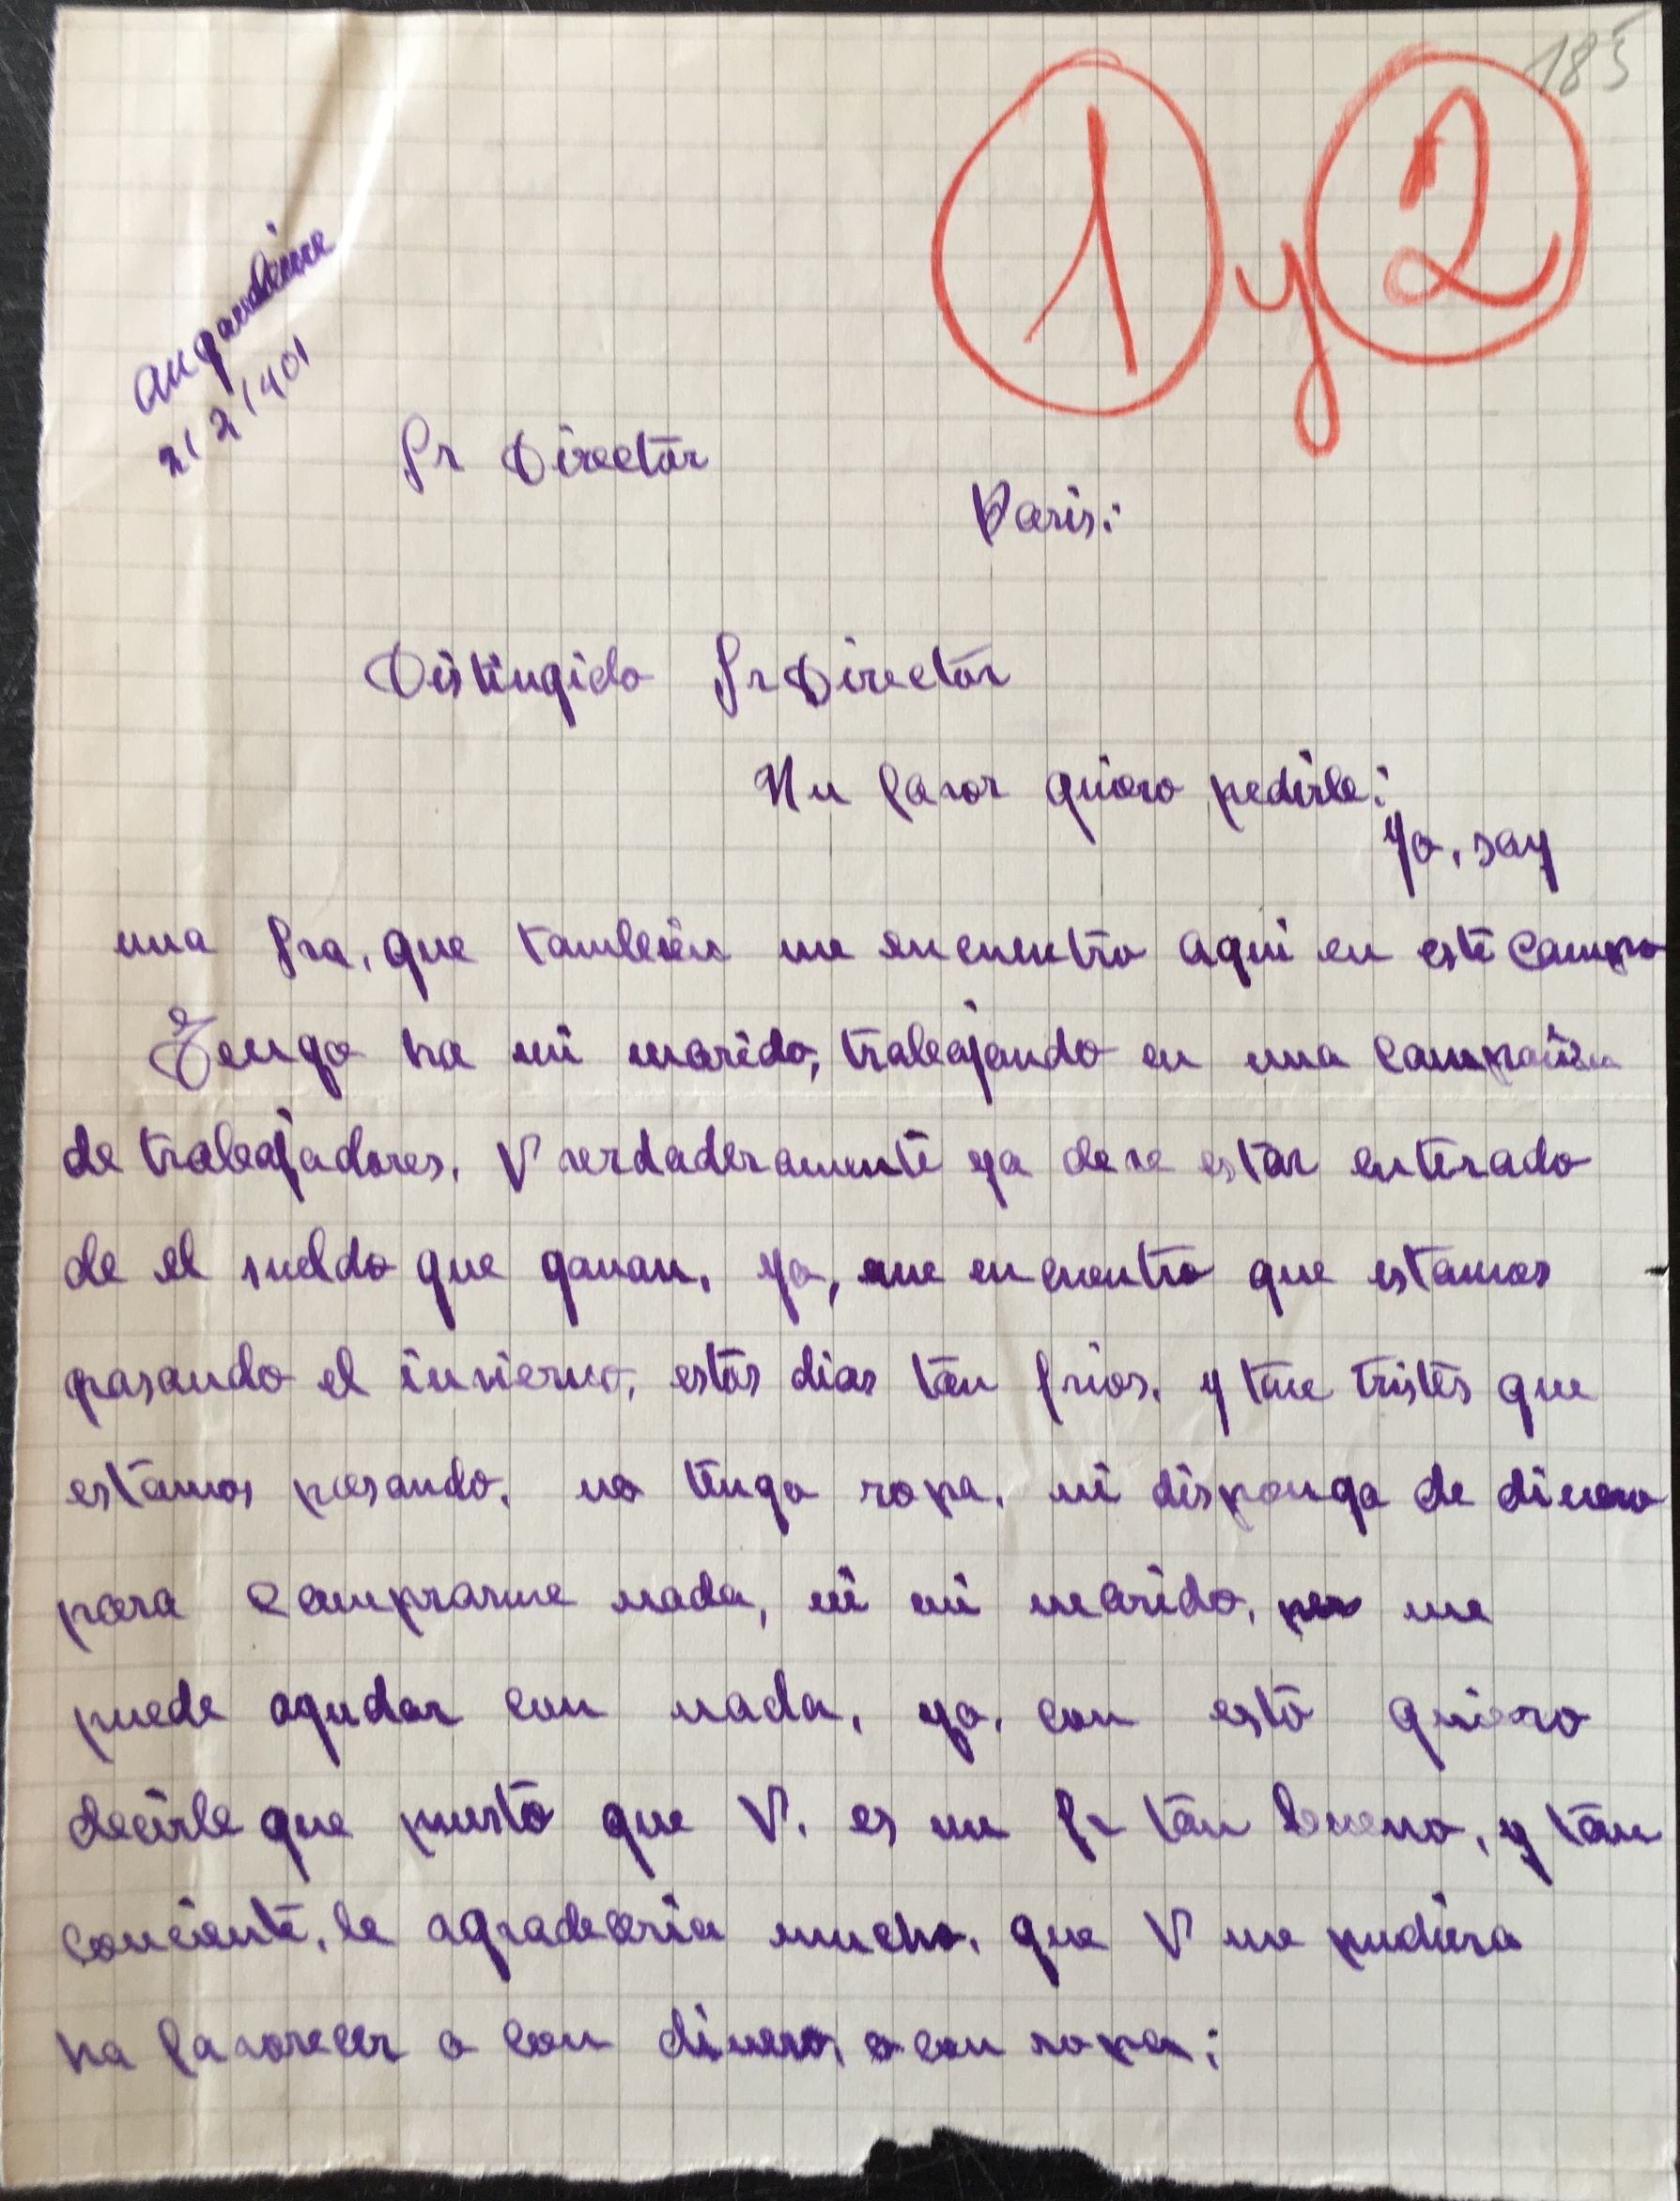 185
1 y 2
2/2/401
Sr Director
Paris:
Distingido Sr Director
Un favor quiero pedirle:
Yo, soy
una Sra, que tambien me encuentro aqui en este Campo
Tengo ha mi marido, trabajando en una compañia
de trabajadores. V verdaderamente ya deve estar enterado
de el sueldo que ganan. yo, me encuentro que estamos
pasando el invierno, estos dias tan frios. y tan tristes que
estamos pasando. no tengo ropa. ni dispongo de dinero
para comprarme nada, ni mi marido, me
puede ayudar con nada. yo. con esto quiero
decirle que puesto que V. es un Sr tan bueno, y tan
conciente, le agradeceria mucho. que V me pudiera
ha favorecer o con dinero, o con ropa;